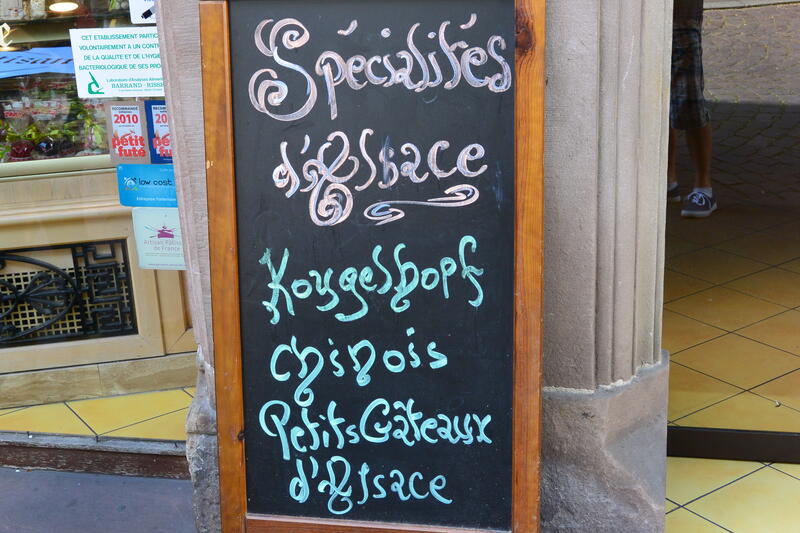 CET ETABLISSEMENT PARTICIPE
VOLONTAIREMENT A UN
DE LA QUALITE ET DE L'HYGIENE
BACTERIOLOGIQUE DE SES
Laboratoire d'Analyses
BARRAND - RISSE
RECOMMANDÉ
2010
petit
futé
low cost
Artisan
de France
Spécialités
d'Alsace
Kougelhopf
chinois
Petits Gâteaux
d'Alsace